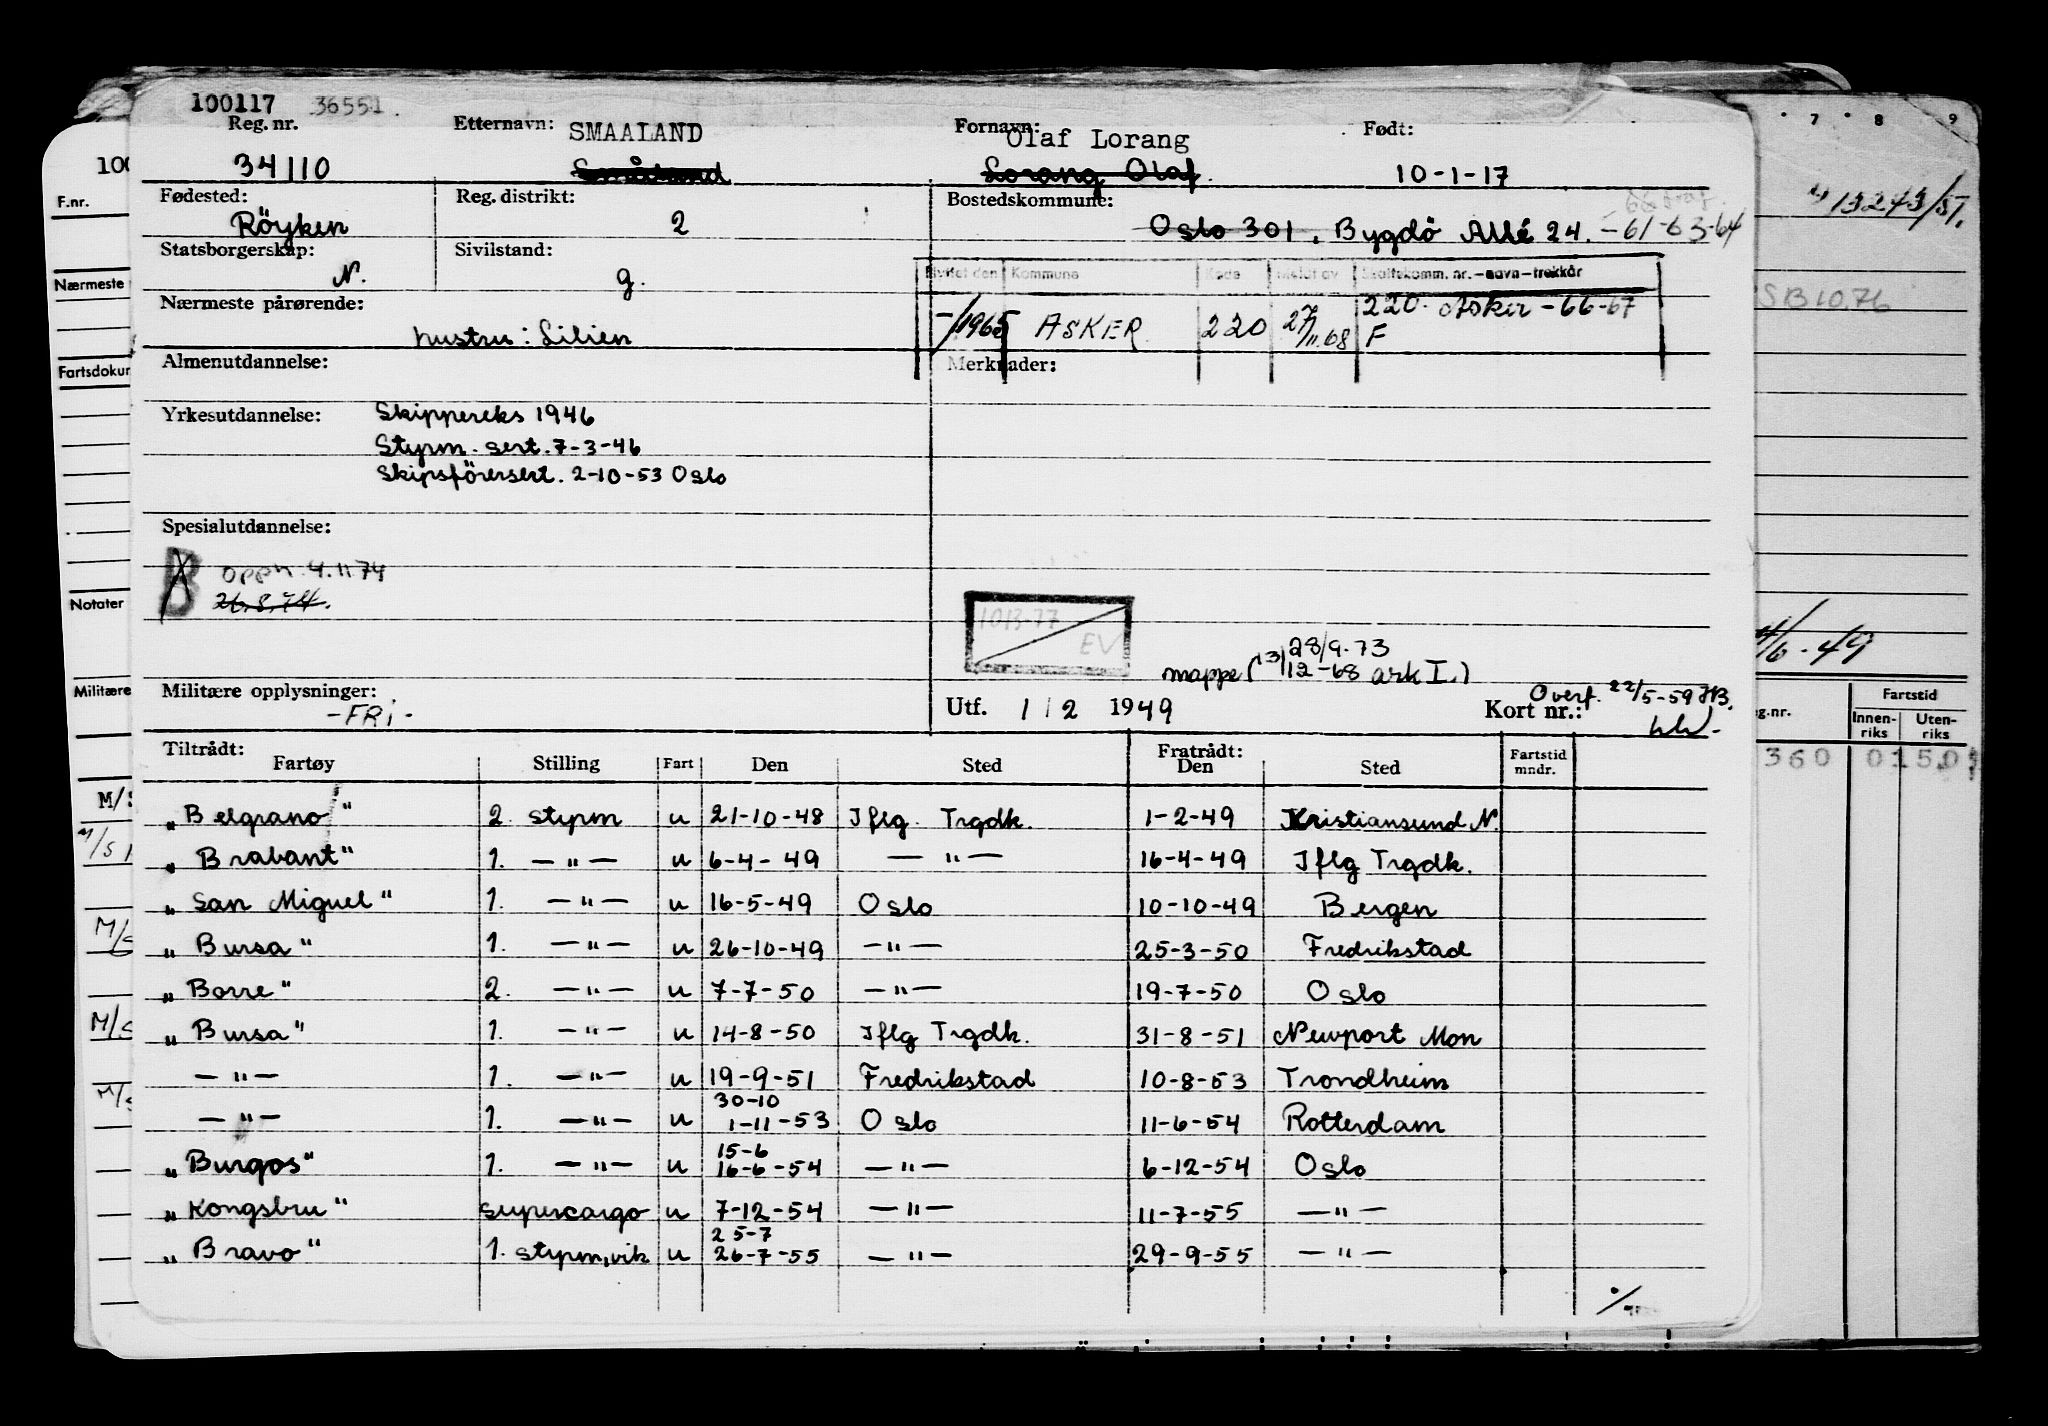 100117 36551
Reg. nr. Etternavn: SMAALAND Fornavn: Olaf Lorang Født:
34110 Småland Lorang Olaf. 10-1-17
Fødested: Reg. distrikt: Bostedskommune:
Röyken 2 Oslo 301, Bygdö Allé 24. -61-63-64
Statsborgerskap: Sivilstand:
N. g.
Kommune Kode Meldt av Skattekomm. nr.-navn-trekkår
Nærmeste pårørende: -/1965 ASKER 220 27/11.68 220. Asker-66-67
hustru: Lilien F
Almenutdannelse: Merknader:
Yrkesutdannelse: Skippereks 1946
Styrm. sert. 7-3-46
Skipsförersert. 2-10-53 Oslo
Spesialutdannelse:
B oppn. 4.11 74
26.8.74.
1013-77
EV
28/9.73
mappe (13/12-68 ark I.)
Militære opplysninger: Utf. 1/2 1949 Kort nr.: Overf. 22/5-59 HB.
-FRi-
Tiltrådt: Fratrådt:
Fartøy Stilling Fart Den Sted Den Sted Fartstid mndr.
„Belgrano" 2. styrm u 21-10-48 Iflg. Trgdk. 1-2-49 Kristiansund N.
„Brabant" 1. —"— u 6-4-49 —"— 16-4-49 Iflg Trgdk.
„San Miguel" 1. —"— u 16-5-49 Oslo 10-10-49 Bergen
„Bursa" 1. —"— u 26-10-49 —"— 25-3-50 Fredrikstad
„Borre" 2. —"— u 7-7-50 —"— 19-7-50 Oslo
„Bursa" 1. —"— u 14-8-50 Iflg Trgdk. 31-8-51 Newport Mon
—"— 1. —"— u 19-9-51 Fredrikstad 10-8-53 Trondheim
30-10
—"— 1. —"— u 1-11-53 Oslo 11-6-54 Rotterdam
15-6
„Burgos" 1. —"— u 16-6-54 —"— 6-12-54 Oslo
„Kongsbru" supercargo u 7-12-54 —"— 11-7-55 —"—
25-7
„Bravo" 1. styrm, vik u 26-7-55 —"— 29-9-55 —"—
100
F.nr.
Nærmeste
Fartsdokur
Notater
Militære
M/S
M/S
M/S
M/S
M/S
7 8 9
13243/51.
SB 10.76
4/6-49
g.nr. Fartstid
Innen-riks Uten-riks
360 015,0